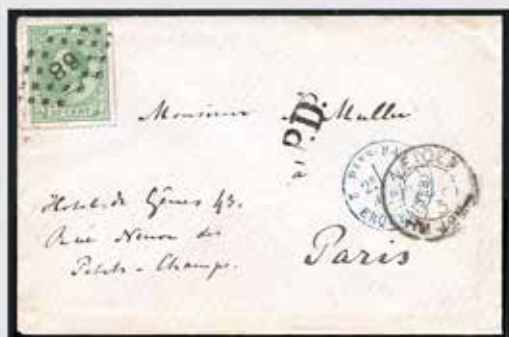 88
CENT
Monsieur Muller
P.D.
à
PAYS-BAS
Hotel de Gênes 43.
Rue Neuve des
Petits-Champs.
Paris